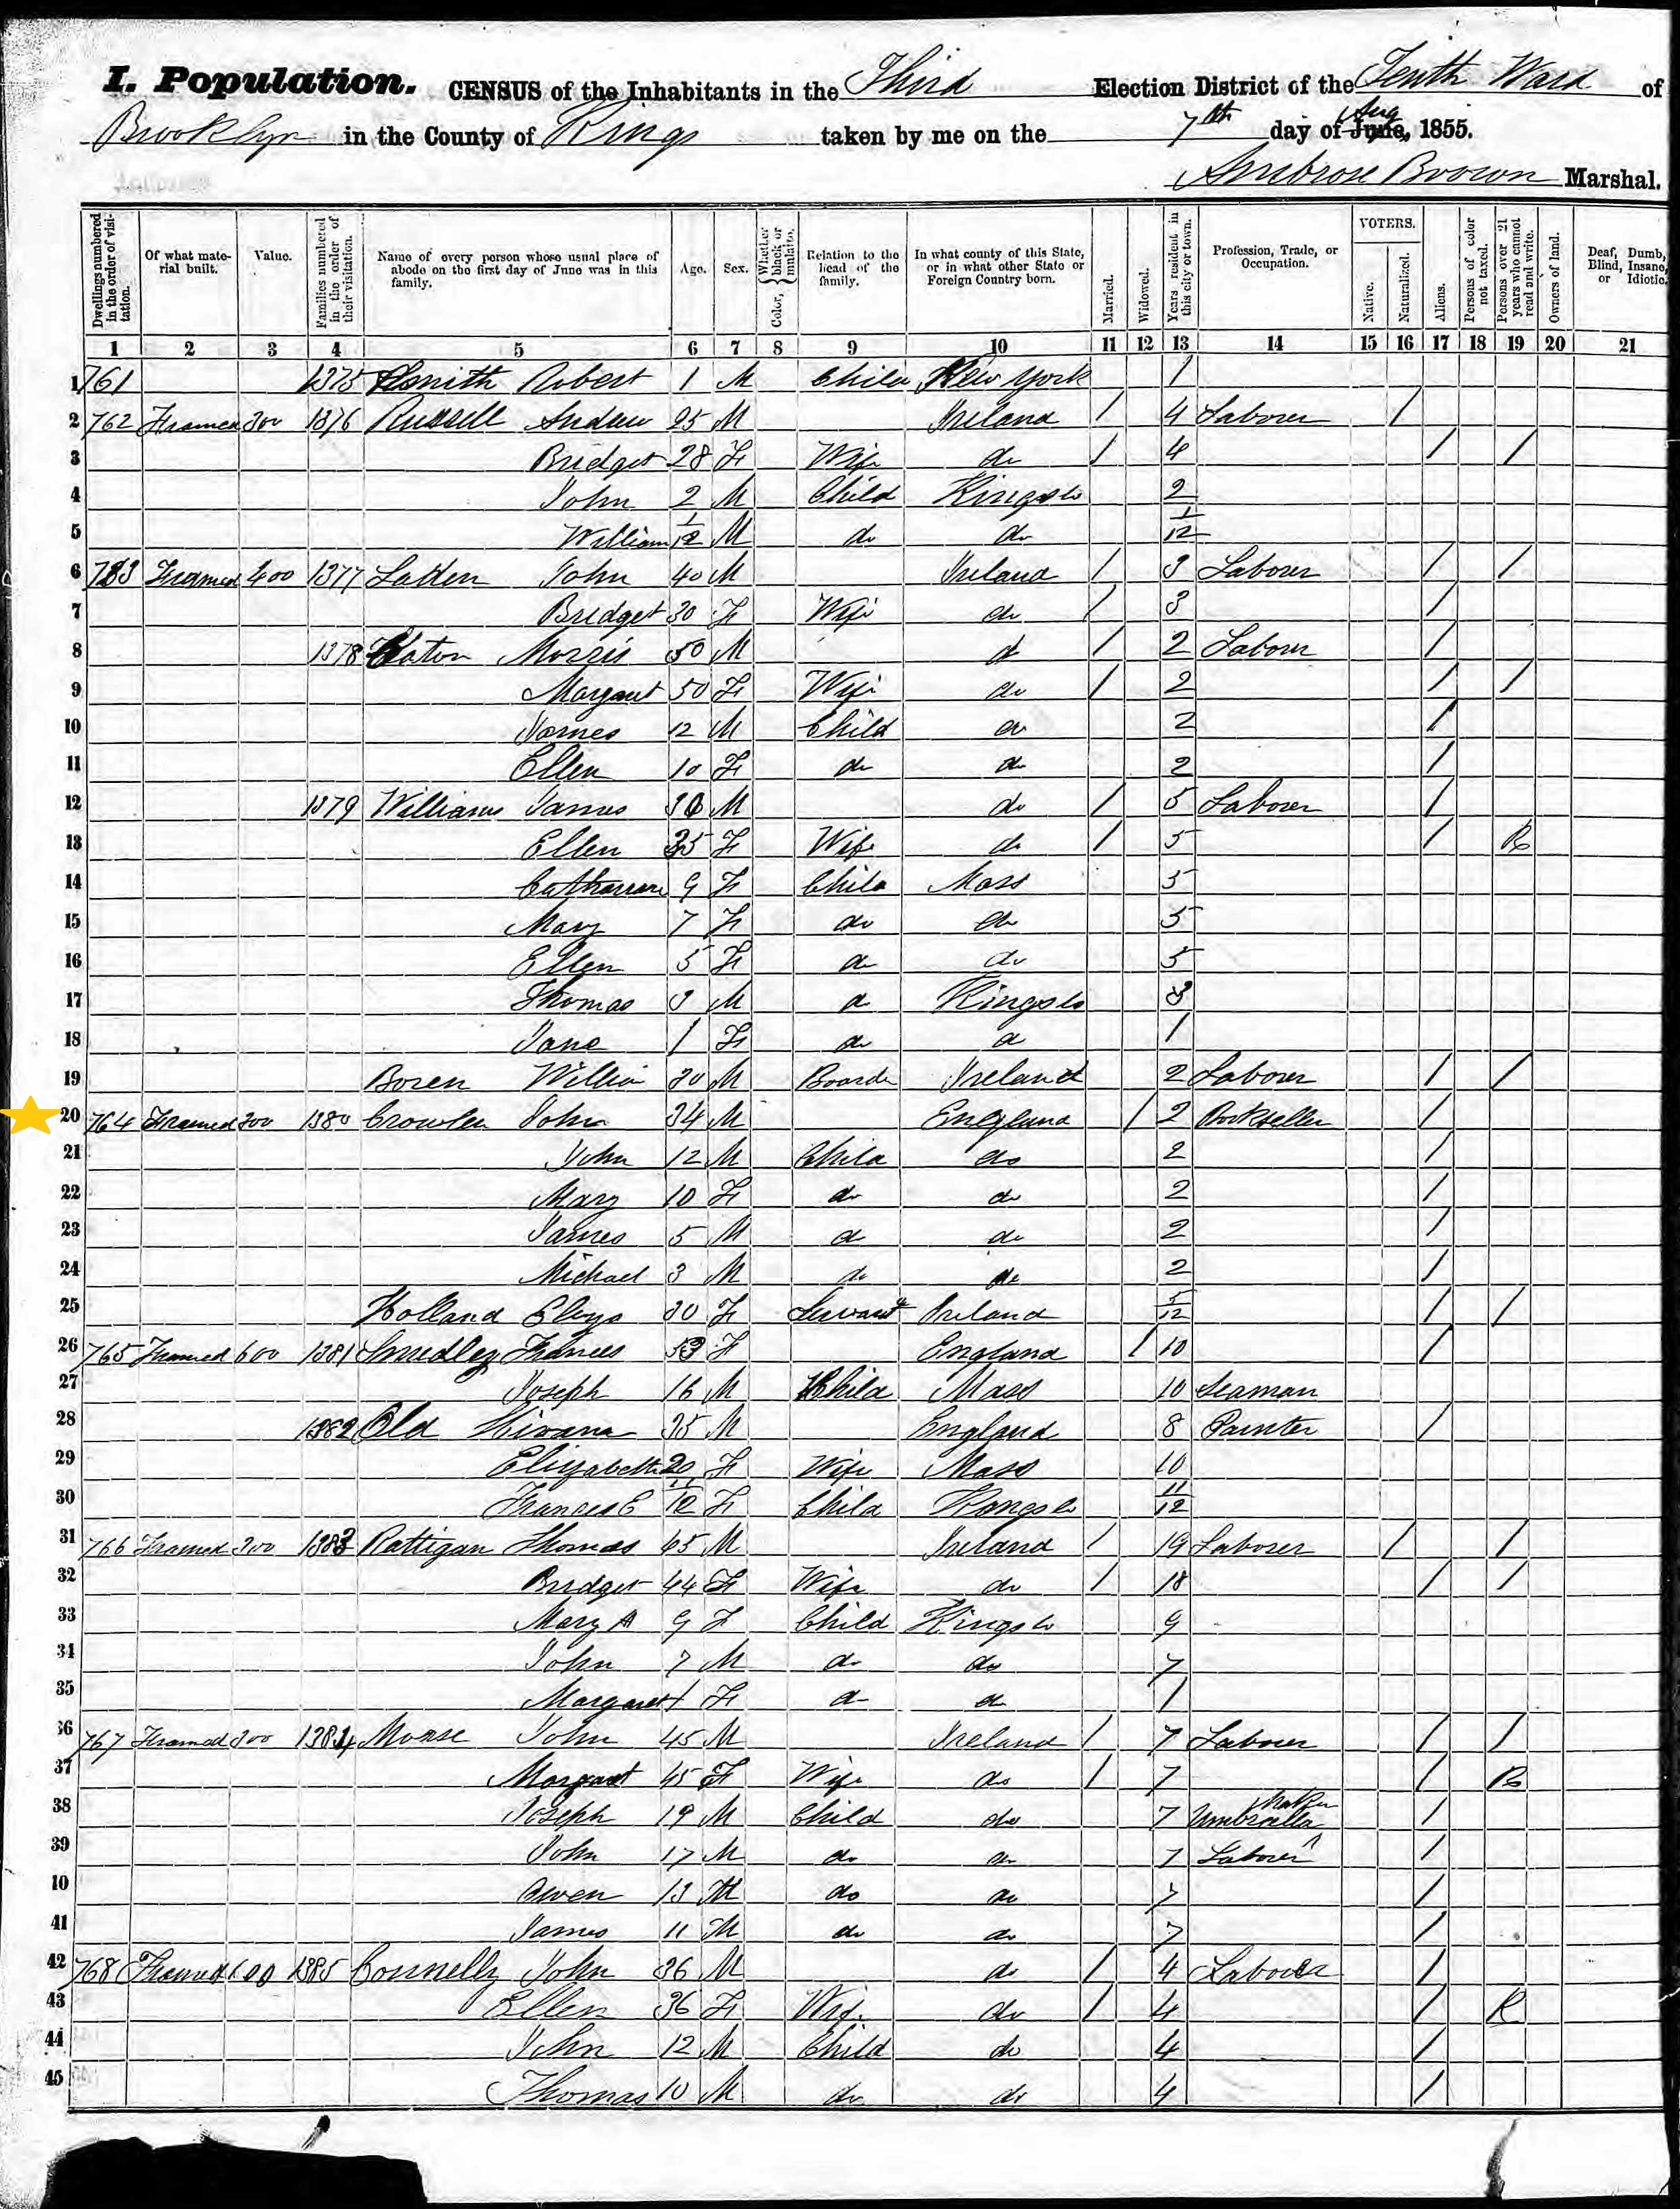 I. Population. CENSUS of the Inhabitants in the Third Election District of the Tenth Ward of
Brooklyn in the County of Kings taken by me on the 7th day of June, Aug 1855.
Ambrose Brown Marshal.
Dwellings numbered in the order of visitation. Of what material built. Value. Families numbered in the order of their visitation. Name of every person whose usual place of abode on the first day of June was in this family. Age. Sex. Color, Whether black or mulatto. Relation to the head of the family. In what county of this State, or in what other State or Foreign Country born. Married. Widowed. Years resident in this city or town. Profession, Trade, or Occupation. VOTERS. Native. Naturalized. Aliens. Persons of color not taxed. Persons over 21 years who cannot read and write. Owners of land. Deaf, Dumb, Blind, Insane, or Idiotic.
1 2 3 4 5 6 7 8 9 10 11 12 13 14 15 16 17 18 19 20 21
1 761 1375 Smith Robert 1 M Child New York 1
2 762 Framed 300 1376 Russell Andrew 25 M Ireland / 4 Laborer /
3 Bridget 28 F Wife do / 4 / /
4 John 2 M Child Kings Co 2
5 William 1/12 M do do 1/12
6 763 Framed 400 1377 John 40 M Ireland / 3 Laborer / /
7 Bridget 30 F Wife do / 3 /
8 1378 Morris 50 M d / 2 Laborer /
9 Margaret 50 F Wife do / 2 / /
10 James 12 M Child do 2 /
11 Ellen 10 F do do 2 /
12 1379 Williams James 36 M do / 5 Laborer /
13 Ellen 35 F Wife do / 5 / R
14 Catharine 9 F Child Mass 5
15 Mary 7 F do do 5
16 Ellen 5 F do do 5
17 Thomas 3 M d Kings Co 3
18 Jane 1 F do d 1
19 Boren 30 M Boarder Ireland 2 Laborer / /
20 764 Framed 300 1380 Crowley John 34 M England / 2 /
21 John 12 M Child do 2 /
22 Mary 10 F do do 2 /
23 James 5 M d do 2 /
24 Michael 3 M do do 2 /
25 Holland 30 F Servant Ireland 5/12 / /
26 765 Framed 600 1381 Smedley Frances 53 F England / 10 /
27 Joseph 16 M Child Mass 10 Seaman
28 1382 Old 35 M England 8 Painter /
29 Elizabeth 20 F Wife Mass 10
30 Frances E 11/12 F Child Kings Co 11/12
31 766 Framed 300 1383 Rattigan Thomas 65 M Ireland / 19 Laborer / /
32 Bridget 44 F Wife do / 18 / /
33 Mary A 9 F Child Kings Co 9
34 John 7 M do do 7
35 Margaret 1 F d do 1
36 767 Framed 300 1384 John 45 M Ireland / 7 Laborer / /
37 Margaret 45 F Wife do / 7 / R
38 Joseph 19 M Child do 7 Umbrella Maker /
39 John 17 M do do 7 Laborer /
40 Owen 13 M do do 7 /
41 James 11 M do do 7 /
42 768 Framed 600 1385 Connelly John 36 M do / 4 Laborer /
43 Ellen 36 F Wife do / 4 / R
44 John 12 M Child do 4 /
45 Thomas 10 M do do 4 /